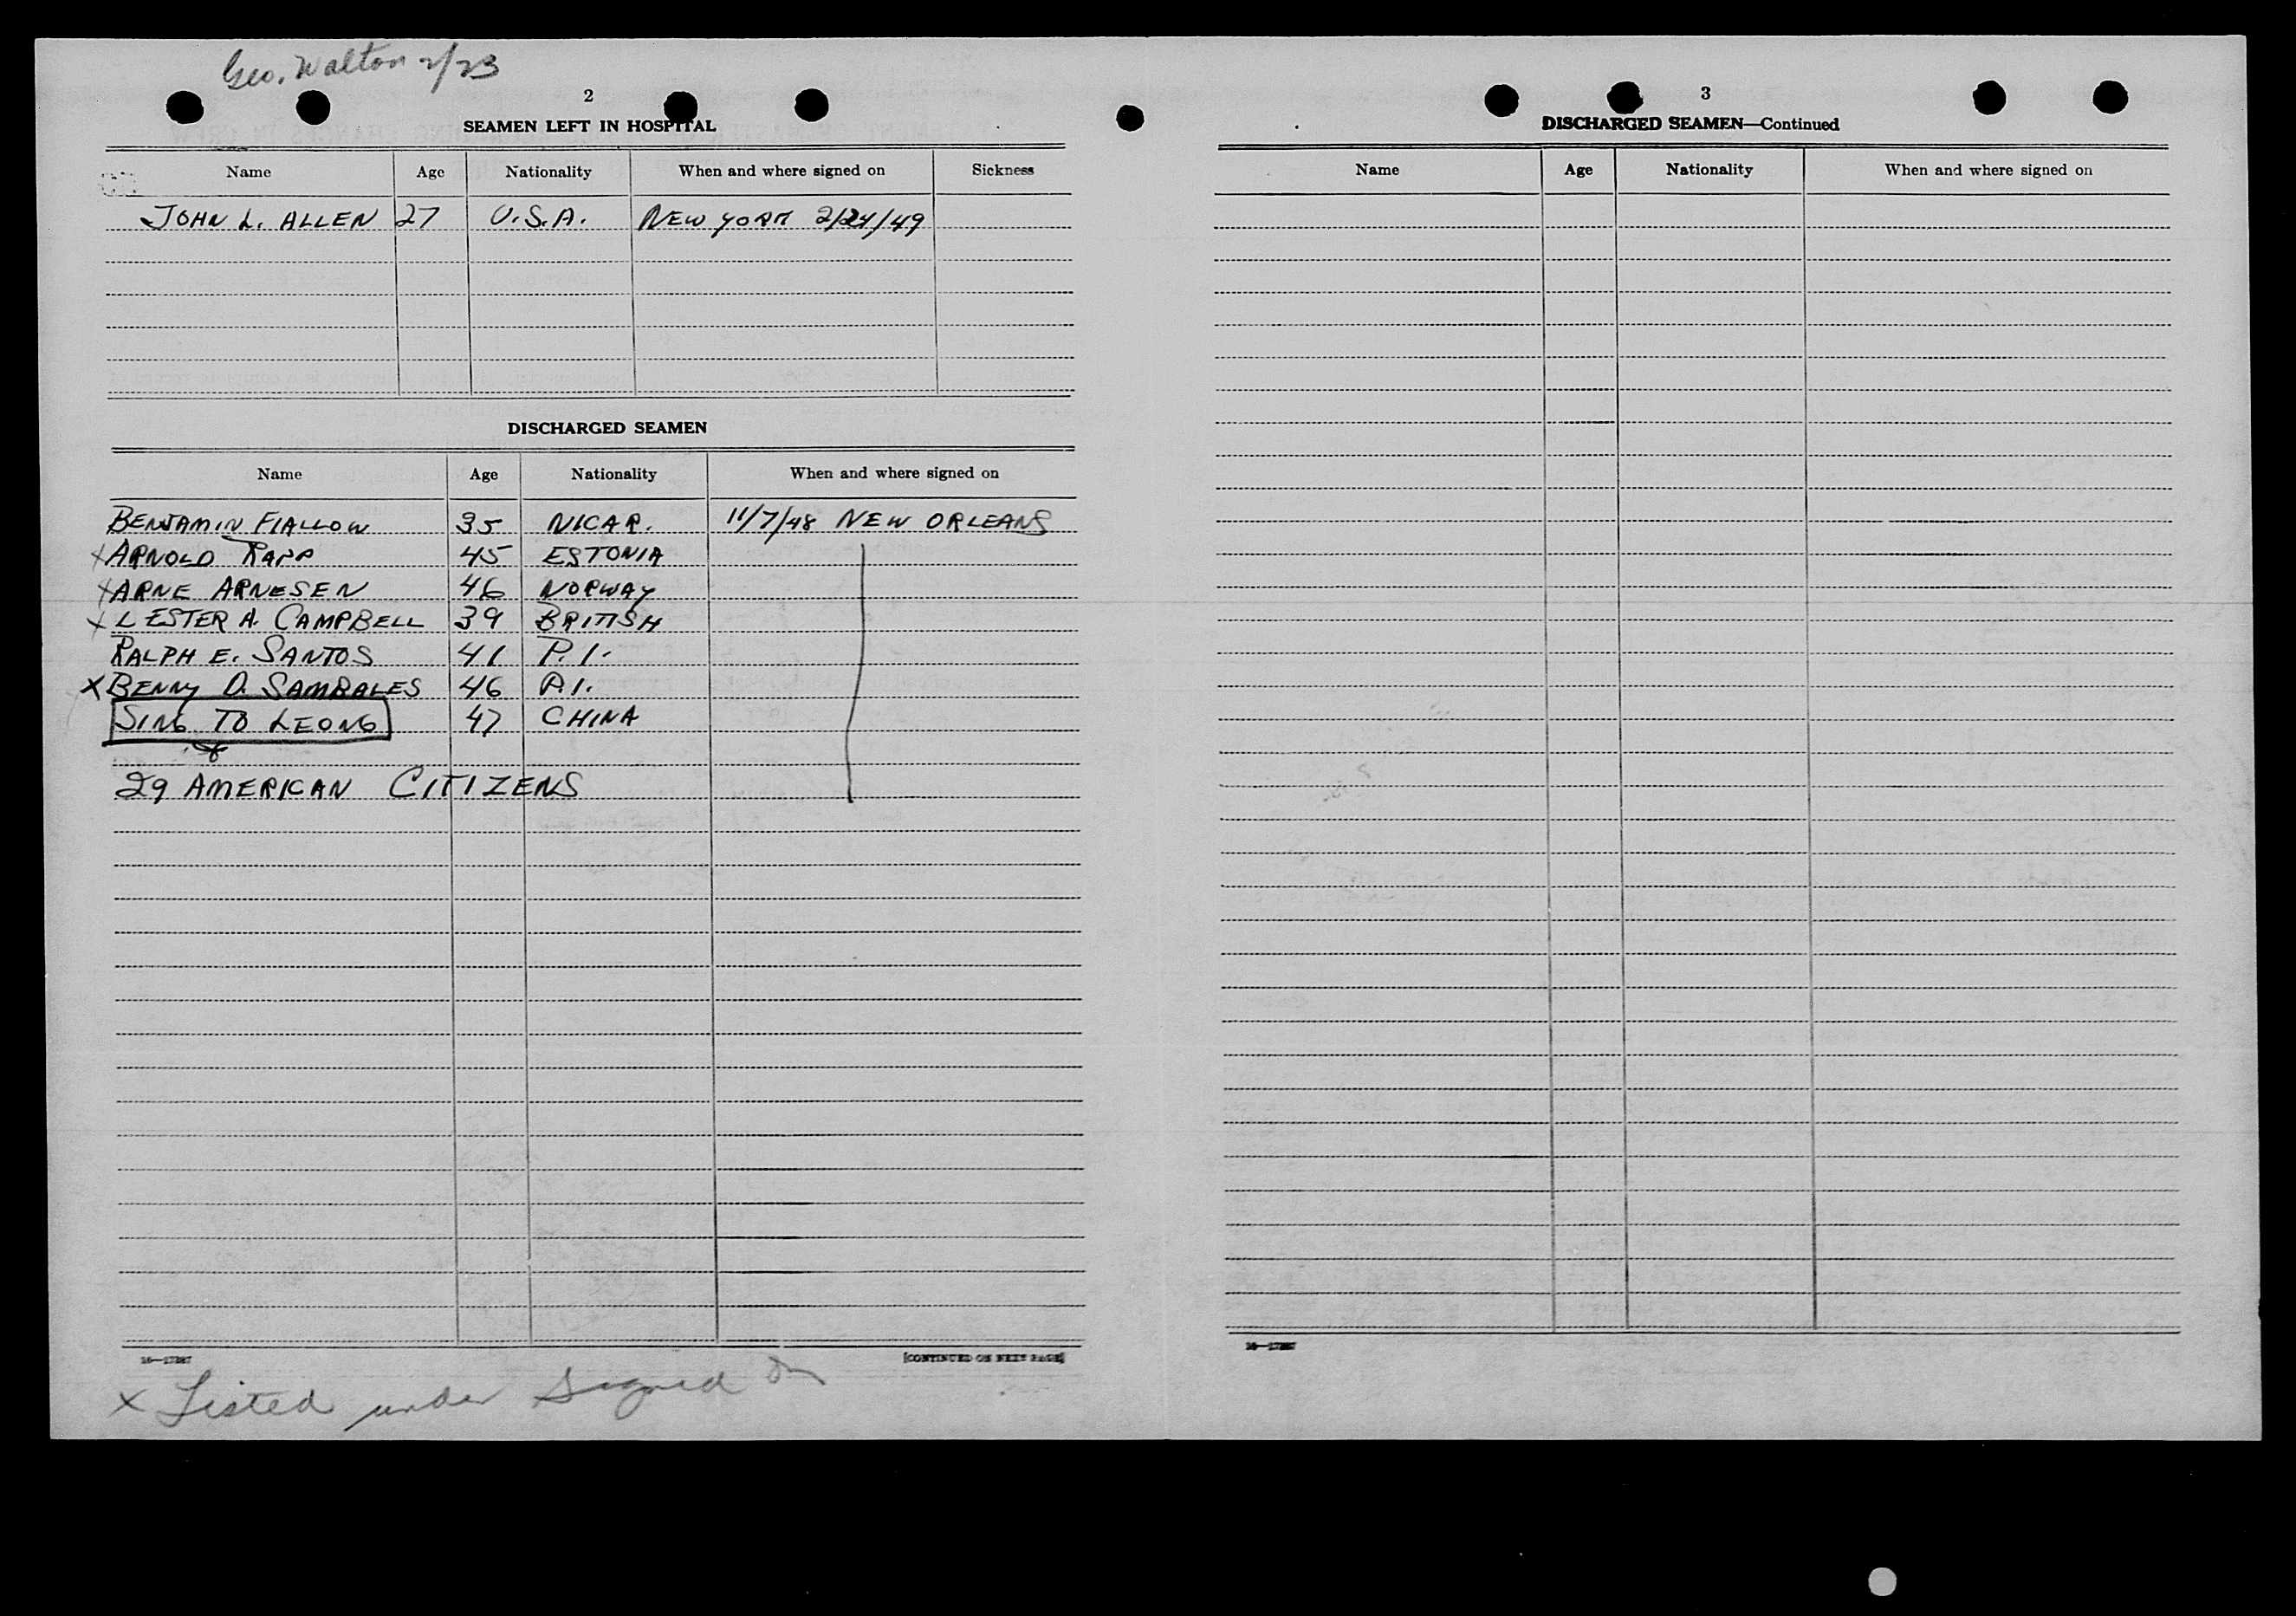 Geo. Walton 2/23
2
SEAMEN LEFT IN HOSPITAL
Name Age Nationality When and where signed on Sickness
JOHN L. ALLEN 27 U.S.A. NEW YORK 2/24/49
DISCHARGED SEAMEN
Name Age Nationality When and where signed on
BENJAMIN FIALLOW 35 NICAR. 11/7/48 NEW ORLEANS
X ARNOLD RAPP 45 ESTONIA
X ARNE ARNESEN 46 NORWAY
X LESTER A. CAMPBELL 39 BRITISH
RALPH E. SANTOS 41 P.I.
X BENNY D. SAMBALES 46 P.I.
SING TO LEONG 47 CHINA
29 AMERICAN CITIZENS
16—17287 [CONTINUED ON NEXT PAGE]
x Listed under Signed On
3
DISCHARGED SEAMEN—Continued
Name Age Nationality When and where signed on
16—17287